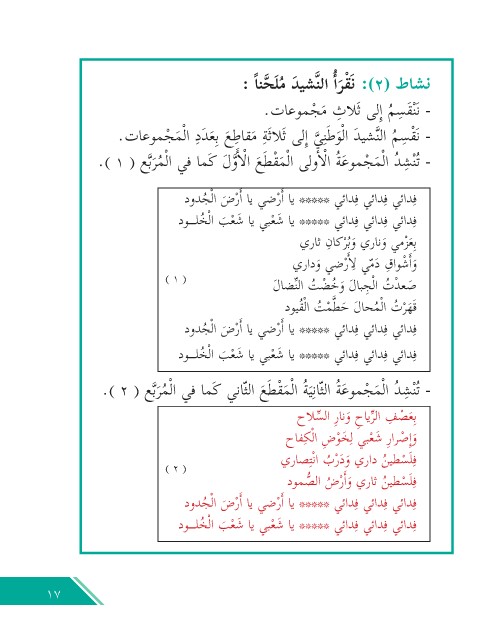 نشاط (٢): نَقْرَأُ النَّشيدَ مُلَحَّناً :
- نَنْقَسِمُ إِلى ثَلاثِ مَجْموعات.
- نَقْسِمُ النَّشيدَ الْوَطَنِيَّ إِلى ثَلاثَةِ مَقاطِعَ بِعَدَدِ الْمَجْموعات.
- تُنْشِدُ الْمَجْموعَةُ الْأولى الْمَقْطَعَ الْأَوَّلَ كَما في الْمُرَبَّع ( ١ ).
فِدائي فِدائي فِدائي ***** يا أَرْضي يا أَرْضَ الْجُدود
فِدائي فِدائي فِدائي ***** يا شَعْبي يا شَعْبَ الْخُلــود
بِعَزْمي وَناري وَبُرْكانِ ثاري
وَأَشْواقِ دَمّي لِأَرْضي وَداري
صَعدْتُ الْجِبالَ وَخُضْتُ النِّضالَ
قَهَرْتُ الْمُحالَ حَطَّمْتُ الْقُيود
فِدائي فِدائي فِدائي ***** يا أَرْضي يا أَرْضَ الْجُدود
فِدائي فِدائي فِدائي ***** يا شَعْبي يا شَعْبَ الْخُلــود
( ١ )
- تُنْشِدُ الْمَجْموعَةُ الثّانِيَةُ الْمَقْطَعَ الثّاني كَما في الْمُرَبَّع ( ٢ ).
بِعَصْفِ الرِّياحِ وَنارِ السِّلاح
وَإِصْرارِ شَعْبي لِخَوْضِ الْكِفاح
فِلَسْطينُ داري وَدَرْبُ انْتِصاري
فِلَسْطينُ ثاري وَأَرْضُ الصُّمود
فِدائي فِدائي فِدائي ***** يا أَرْضي يا أَرْضَ الْجُدود
فِدائي فِدائي فِدائي ***** يا شَعْبي يا شَعْبَ الْخُلــود
( ٢ )
١٧